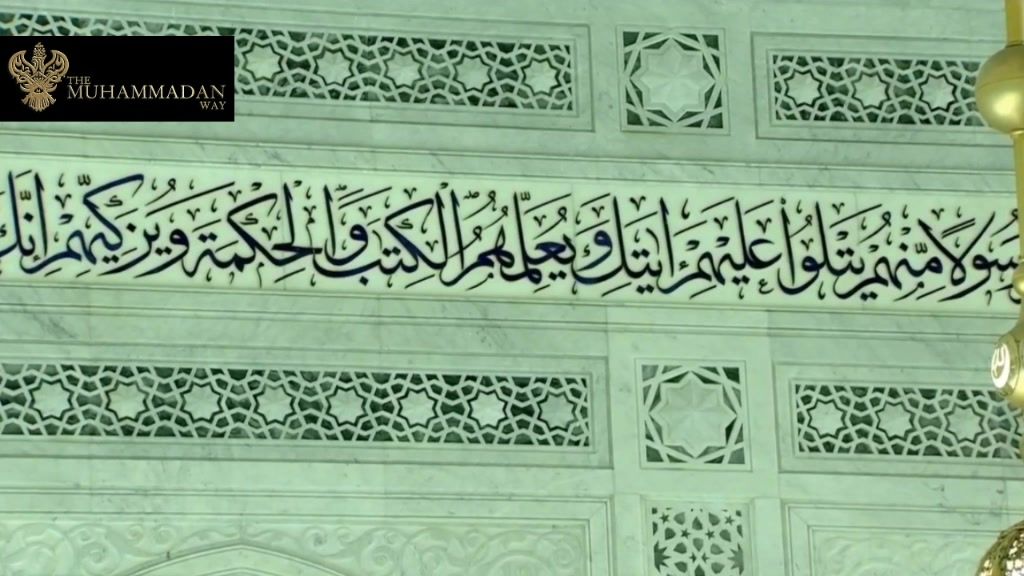 THE
MUHAMMADAN
WAY
رَسُولًا مِّنْهُمْ يَتْلُوا۟ عَلَيْهِمْ ءَايَٰتِكَ وَيُعَلِّمُهُمُ ٱلْكِتَٰبَ وَٱلْحِكْمَةَ وَيُزَكِّيهِمْ إِنَّكَ